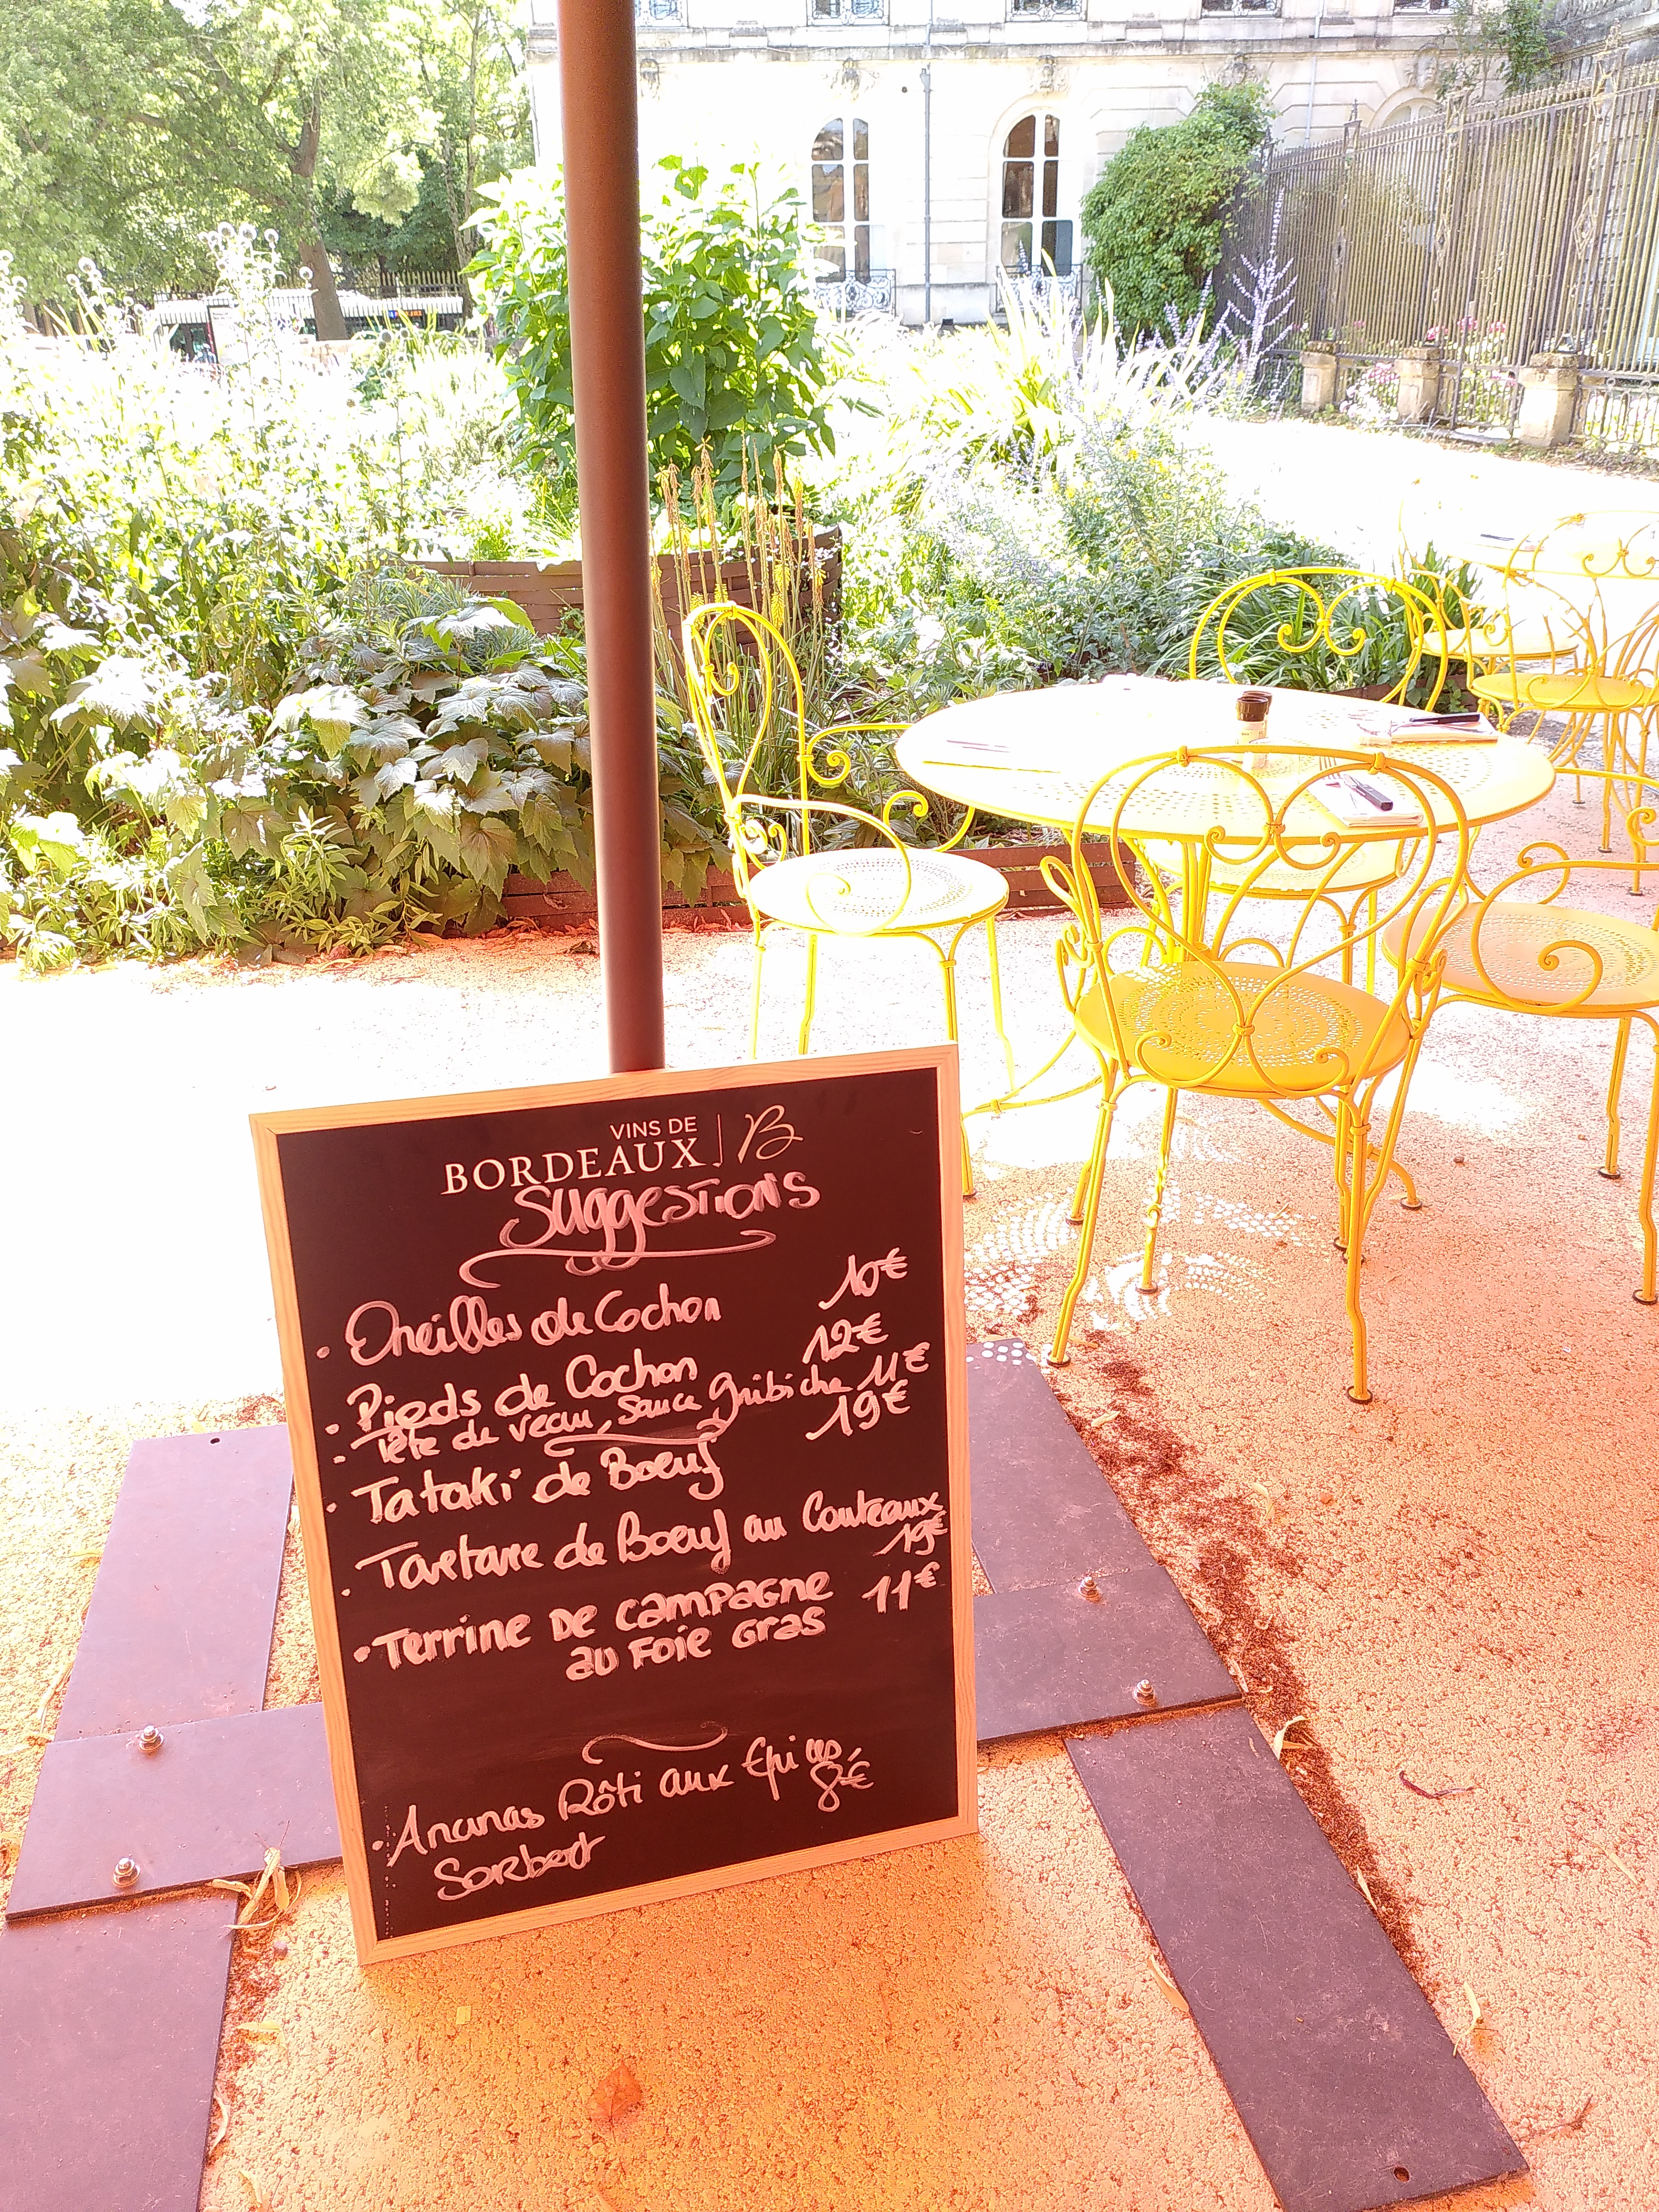 VINS DE
BORDEAUX B
Suggestions
. Oreilles de Cochon 10€
. Pieds de Cochon 12€
- Tête de veau, sauce gribiche 11€
. Tataki de Boeuf 19€
. Tartare de Boeuf au Couteaux
19€
• Terrine de campagne 11€
au Foie Gras
• Ananas Rôti aux Epices,
Sorbert 8€